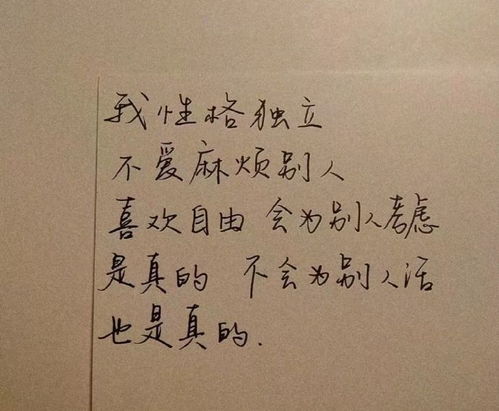 我性格独立
不爱麻烦别人
喜欢自由 会为别人考虑
是真的 不会为别人活
也是真的.